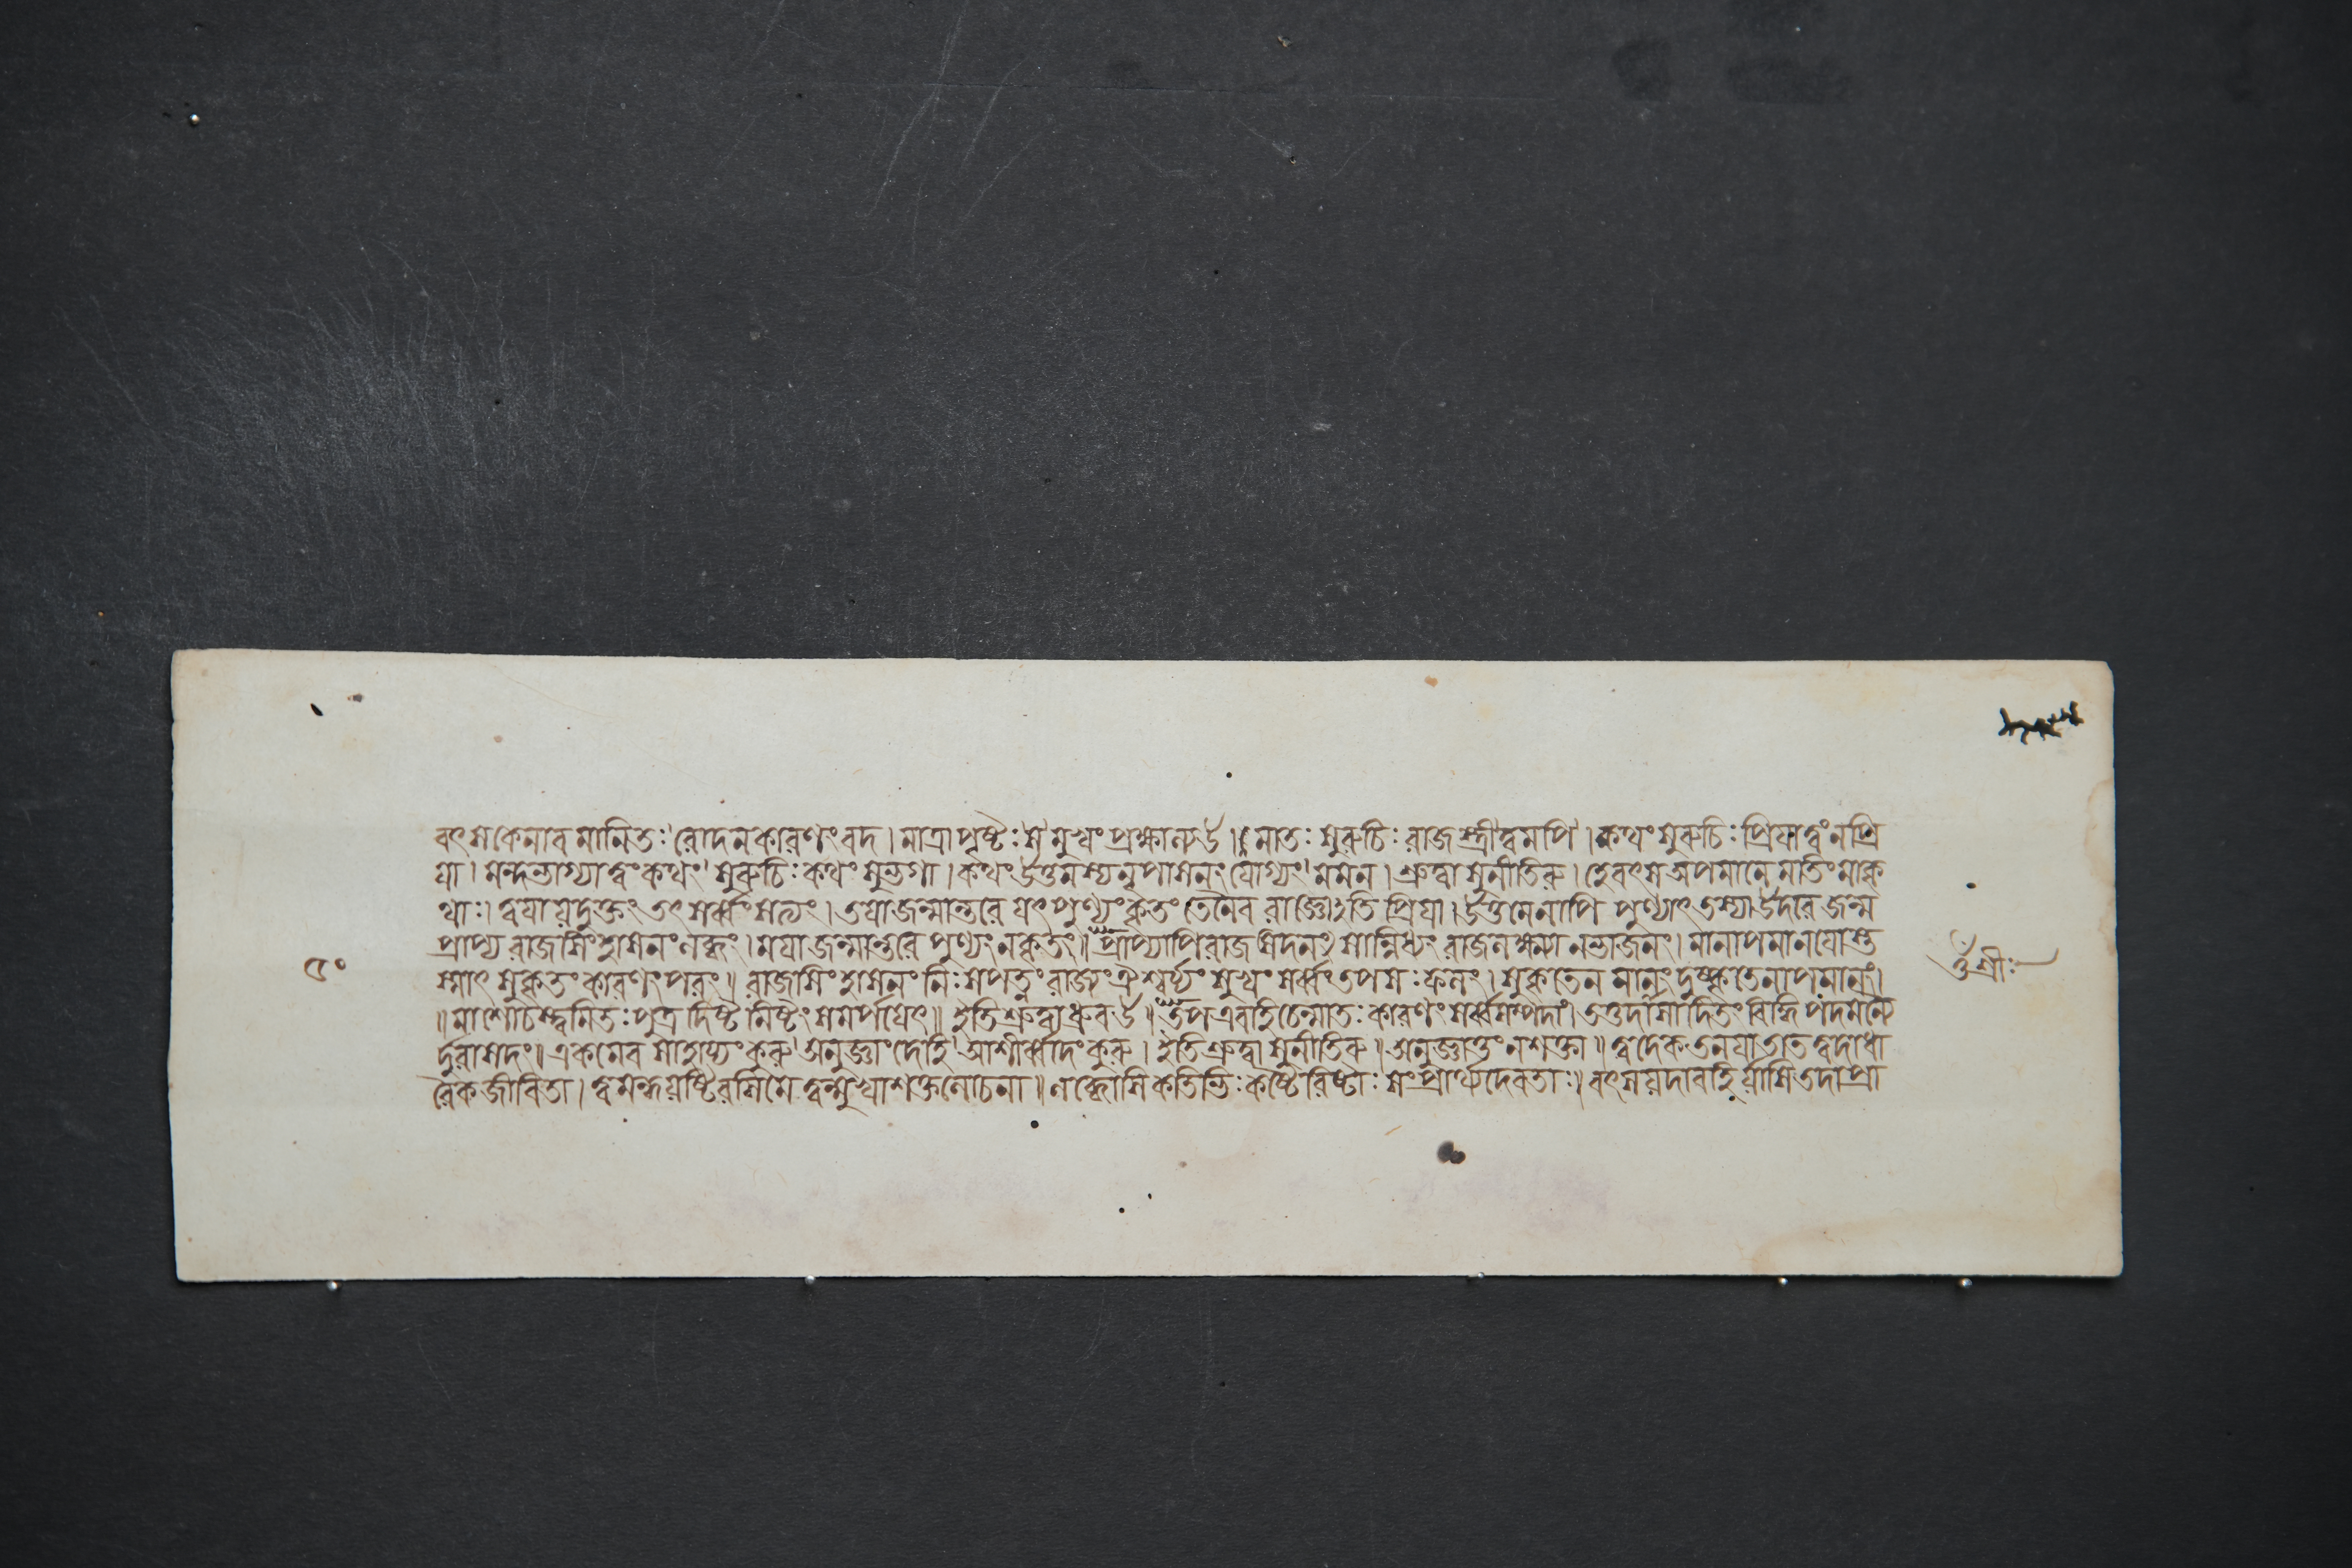 বৎস কেনাবমানিতঃ রোদনকারণং বদ। মাত্রা পৃষ্টঃ স মুখং প্রক্ষাল্য উ। মাতঃ সুরুচিঃ রাজস্ত্রী ত্বমপি। কথং সুরুচিঃ প্রিয়া ত্বং ন প্রি
য়া। মন্দভাগ্যা ত্বং কথং সুরুচিঃ কথং সুভগা। কথং উত্তমস্য নৃপাসনং যোগ্যং মম ন। শ্রুত্বা সুনীতিরু। হে বৎস অপমানে মতিং মা কৃ
থাঃ। ত্বয়া যদুক্তং তৎ সর্ব্বং সত্যং। তয়া জন্মান্তরে যৎ পুণ্যং কৃতং তেনৈব রাজ্ঞোঽতি প্রিয়া। উত্তমেনাপি পুণ্যাৎ তস্যা উদরে জন্ম
প্রাপ্য রাজসিংহাসনং লব্ধং। ময়া জন্মান্তরে পুণ্যং ন কৃতং॥ প্রাপ্যাপি রাজসদনং সান্নিধ্যং রাজলক্ষ্ম্যা ন ভাজনং। মানাপমানয়োস্ত
স্মাৎ সুকৃতং কারণং পরং॥ রাজসিংহাসনং নিঃসপত্নং রাজ্যং ঐশ্বর্য্যং সুখং সর্ব্বং তপসঃ ফলং। সুকৃতেন মান্যং দুষ্কৃতেনাপমান্যং।
॥ মা শোচস্ত্বমিতঃ পুত্র দিষ্টমিষ্টং সমর্পয়েৎ॥ ইতি শ্রুত্বা ধ্রুব উ॥ তপ এবাহি চেন্মাতঃ কারণং সর্ব্বসম্পদাং। তত্তদাসাদিতং বিদ্ধি পদমন্যৈ
র্দুরাসদং॥ একমেব সাহায্যং কুরু অনুজ্ঞাং দেহি আশীর্ব্বাদং কুরু। ইতি শ্রুত্বা সুনীতিরু॥ অনুজ্ঞাতুং ন শক্তা॥ ত্বদেকতনয়া তাত ত্বদাধা
রৈকজীবিতা। ত্বমন্ধযষ্টিরসি মে ত্বন্মুখাসক্তলোচনা॥ লব্ধোসি কতিভিঃ কষ্টৈরিষ্টাঃ সংপ্রার্থ্য দেবতাঃ। বৎস যদা বহির্যাসি তদা প্রা
শ্রীঃ